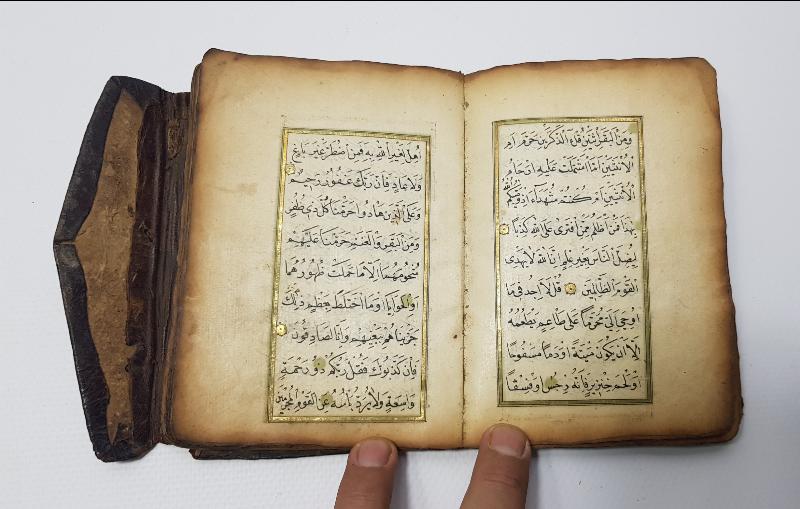 وَمِنَ الْبَقَرِ اثْنَيْنِ قُلْ آلذَّكَرَيْنِ حَرَّمَ اَمِ
الْاُنْثَيَيْنِ اَمَّا اشْتَمَلَتْ عَلَيْهِ اَرْحَامُ
الْاُنْثَيَيْنِ اَمْ كُنْتُمْ شُهَدَاءَ اِذْ وَصّٰيكُمُ اللّٰهُ
بِهٰذَا فَمَنْ اَظْلَمُ مِمَّنِ افْتَرٰى عَلَى اللّٰهِ كَذِبًا
لِيُضِلَّ النَّاسَ بِغَيْرِ عِلْمٍ اِنَّ اللّٰهَ لَا يَهْدِى
الْقَوْمَ الظَّالِمِينَ قُلْ لَا اَجِدُ فِى مَا
اُوحِىَ اِلَىَّ مُحَرَّمًا عَلٰى طَاعِمٍ يَطْعَمُهُ
اِلَّا اَنْ يَكُونَ مَيْتَةً اَوْ دَمًا مَسْفُوحًا
اَوْ لَحْمَ خِنْزِيرٍ فَاِنَّهُ رِجْسٌ اَوْ فِسْقًا
اُهِلَّ لِغَيْرِ اللّٰهِ بِهِ فَمَنِ اضْطُرَّ غَيْرَ بَاغٍ
وَلَا عَادٍ فَاِنَّ رَبَّكَ غَفُورٌ رَحِيمٌ
وَعَلَى الَّذِينَ هَادُوا حَرَّمْنَا كُلَّ ذِى ظُفُرٍ
وَمِنَ الْبَقَرِ وَالْغَنَمِ حَرَّمْنَا عَلَيْهِمْ
شُحُومَهُمَا اِلَّا مَا حَمَلَتْ ظُهُورُهُمَا
اَوِ الْحَوَايَا وَمَا اخْتَلَطَ بِعَظْمٍ ذٰلِكَ
جَزَيْنَاهُمْ بِبَغْيِهِمْ وَاِنَّا لَصَادِقُونَ
فَاِنْ كَذَّبُوكَ فَقُلْ رَبُّكُمْ ذُو رَحْمَةٍ
وَاسِعَةٍ وَلَا يُرَدُّ بَاْسُهُ عَنِ الْقَوْمِ الْمُجْرِمِينَ